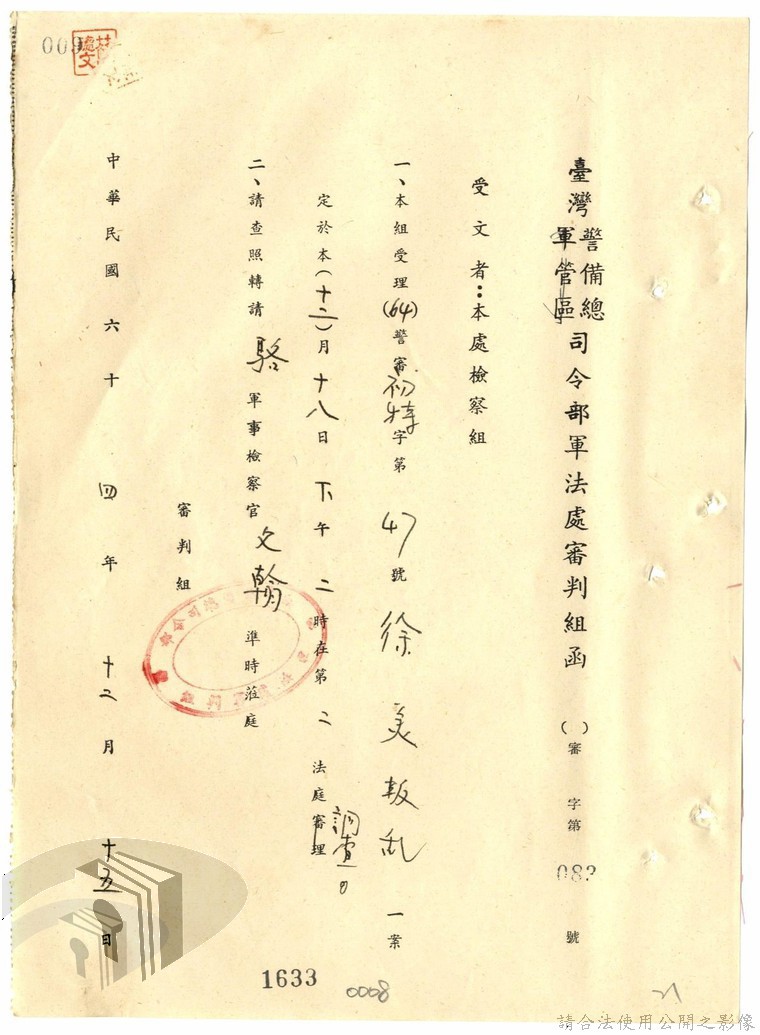 臺灣警備總軍管區司令部軍法處審判組函
( )審 字第 083 號
受文者：本處檢察組
一、本組受理(64)警審初特字第 47 號 徐 美 叛亂 一案
定於本(十二)月十八日下午 二 時在第 二 法庭審理
調查。
二、請查照轉請 駱 軍事檢察官 文翰 準時蒞庭
審判組
中華民國六十 四 年 十二 月 十五 日
1633
0008
請合法使用公開之影像